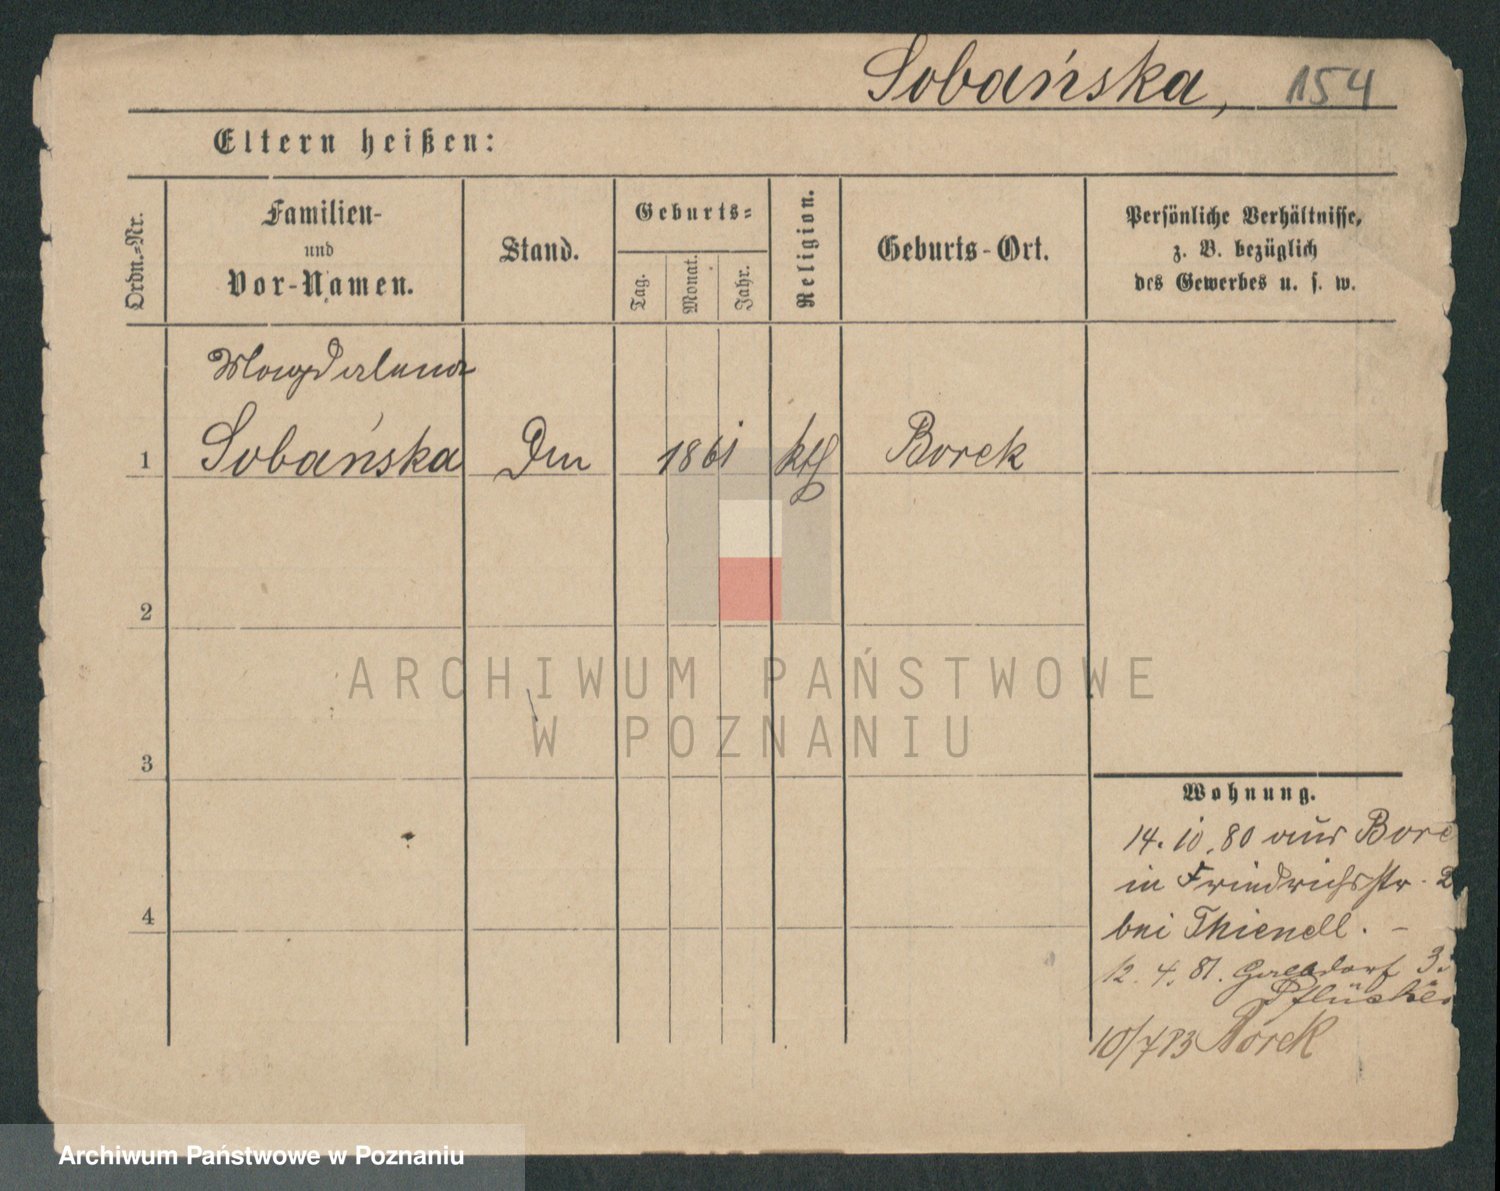 Sobańska, 154
Eltern heißen:
Ordn.-Nr.
Familien-
und
Vor-Namen.
Stand.
Geburts-
Tag.
Monat.
Jahr.
Religion.
Geburts-Ort.
Persönliche Verhältnisse,
z. B. bezüglich
des Gewerbes u. s. w.
Magdalena
1 Sobańska 1861 kth Borek
2
3
4
Wohnung.
14. 10. 80 aus Bore
in Friedrichsstr. 2
bei Thienell. –
12. 4. 81. 3.
Pflücker
10/7 83 Borek
ARCHIWUM PAŃSTWOWE
W POZNANIU
Archiwum Państwowe w Poznaniu